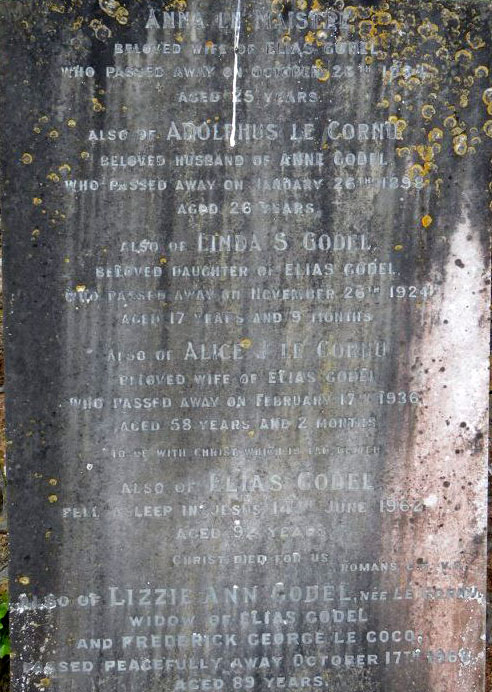 ANNA LE MAISTRE
BELOVED WIFE OF ELIAS GODEL,
WHO PASSED AWAY ON OCTOBER
AGED 25 YEARS.
ALSO OF ADOLPHUS LE CORNU
BELOVED HUSBAND OF ANNE GODEL,
WHO PASSED AWAY ON JANUARY 26TH 1898
AGED 26 YEARS,
ALSO OF LINDA S GODEL,
BELOVED DAUGHTER OF ELIAS GODEL,
WHO PASSED AWAY ON NOVEMBER 26TH 1924
AGED 17 YEARS AND 9 MONTHS
ALSO OF ALICE J LE CORNU
BELOVED WIFE OF ELIAS GODEL
WHO PASSED AWAY ON FEBRUARY 17TH 1936
AGED 58 YEARS AND 2 MONTHS
"TO BE WITH CHRIST WHICH IS FAR BETTER
ALSO OF ELIAS GODEL
FELL ASLEEP IN JESUS 14TH JUNE 1962
AGED 92 YEARS
CHRIST DIED FOR US
ROMANS
ALSO OF LIZZIE ANN GODEL, NÉE LE CORNU,
WIDOW OF ELIAS GODEL
AND FREDERICK GEORGE LE COCQ,
PASSED PEACEFULLY AWAY OCTOBER 17TH
AGED 89 YEARS.